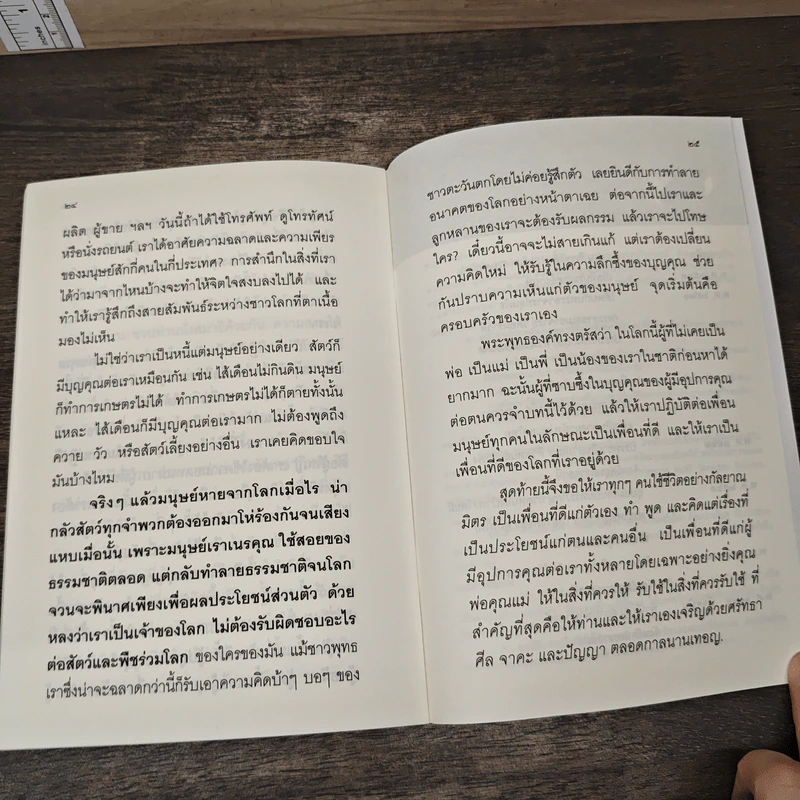 1
2
inches
๒๔
ผลิต ผู้ขาย ฯลฯ วันนี้ถ้าได้ใช้โทรศัพท์ ดูโทรทัศน์
หรือนั่งรถยนต์ เราได้อาศัยความฉลาดและความเพียร
ของมนุษย์สักกี่คนในกี่ประเทศ? การสำนึกในสิ่งที่เรา
ได้ว่ามาจากไหนบ้างจะทำให้จิตใจสงบลงไปได้ และ
ทำให้เรารู้สึกถึงสายสัมพันธ์ระหว่างชาวโลกที่ตาเนื้อ
มองไม่เห็น
ไม่ใช่ว่าเราเป็นหนี้แต่มนุษย์อย่างเดียว สัตว์ก็
มีบุญคุณต่อเราเหมือนกัน เช่น ไส้เดือนไม่กินดิน มนุษย์
ก็ทำการเกษตรไม่ได้ ทำการเกษตรไม่ได้ก็ตายทั้งนั้น
แหละ ไส้เดือนก็มีบุญคุณต่อเรามาก ไม่ต้องพูดถึง
ควาย วัว หรือสัตว์เลี้ยงอย่างอื่น เราเคยคิดขอบใจ
มันบ้างไหม
จริงๆ แล้วมนุษย์หายจากโลกเมื่อไร น่า
กลัวสัตว์ทุกจำพวกต้องออกมาโห่ร้องกันจนเสียง
แหบเมื่อนั้น เพราะมนุษย์เราเนรคุณ ใช้สอยของ
ธรรมชาติตลอด แต่กลับทำลายธรรมชาติจนโลก
จวนจะพินาศเพียงเพื่อผลประโยชน์ส่วนตัว ด้วย
หลงว่าเราเป็นเจ้าของโลก ไม่ต้องรับผิดชอบอะไร
ต่อสัตว์และพืชร่วมโลก ของใครของมัน แม้ชาวพุทธ
เราซึ่งน่าจะฉลาดกว่านี้ก็รับเอาความคิดบ้าๆ บอๆ ของ
๒๕
ชาวตะวันตกโดยไม่ค่อยรู้สึกตัว เลยยินดีกับการทำลาย
อนาคตของโลกอย่างหน้าตาเฉย ต่อจากนี้ไปเราและ
ลูกหลานของเราจะต้องรับผลกรรม แล้วเราจะไปโทษ
ใคร? เดี๋ยวนี้อาจจะไม่สายเกินแก้ แต่เราต้องเปลี่ยน
ความคิดใหม่ ให้รับรู้ในความลึกซึ้งของบุญคุณ ช่วย
กันปราบความเห็นแก่ตัวของมนุษย์ จุดเริ่มต้นคือ
ครอบครัวของเราเอง
พระพุทธองค์ทรงตรัสว่า ในโลกนี้ผู้ที่ไม่เคยเป็น
พ่อ เป็นแม่ เป็นพี่ เป็นน้องของเราในชาติก่อนหาได้
ยากมาก ฉะนั้นผู้ที่ซาบซึ้งในบุญคุณของผู้มีอุปการคุณ
ต่อตนควรจำบทนี้ไว้ด้วย แล้วให้เราปฏิบัติต่อเพื่อน
มนุษย์ทุกคนในลักษณะเป็นเพื่อนที่ดี และให้เราเป็น
เพื่อนที่ดีของโลกที่เราอยู่ด้วย
สุดท้ายนี้จึงขอให้เราทุกๆ คนใช้ชีวิตอย่างกัลยาณ
มิตร เป็นเพื่อนที่ดีแก่ตัวเอง ทำ พูด และคิดแต่เรื่องที่
เป็นประโยชน์แก่ตนและคนอื่น เป็นเพื่อนที่ดีแก่ผู้
มีอุปการคุณต่อเราทั้งหลายโดยเฉพาะอย่างยิ่งคุณ
พ่อคุณแม่ ให้ในสิ่งที่ควรให้ รับใช้ในสิ่งที่ควรรับใช้ ที่
สำคัญที่สุดคือให้ท่านและให้เราเองเจริญด้วยศรัทธา
ศีล จาคะ และปัญญา ตลอดกาลนานเทอญ.